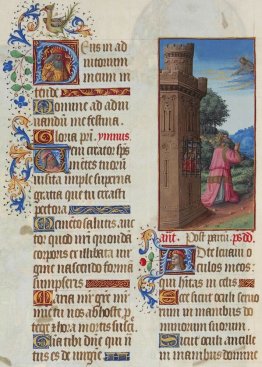 Deus in ad
iutorium
meum in
tende
Domine ad adiu
uandū me festina.
Gloria pri. ymnus.
Veni creator sps
mētes tuorū
visita imple superna
gratia que tu creasti
pectora
Memēto salutis auc
tor quod nri quondā
corporis ex illibata vir
gine nascendo formā
sumpseris
Maria mr gre mr
mie tu nos ab hoste p
tege et hora mortis suscipe
Gloria tibi dne qui na
tus es de virgīe
ant. Post partū. ps dd
Ad te leuaui o
culos meos:
qui hitas in celis
Ecce sicut oculi seruo
rum in manibus do
minorum suorum.
Sicut oculi ancille
in manibus domine